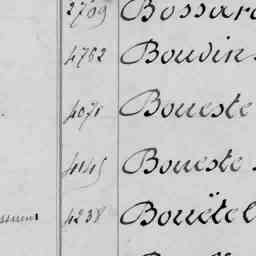 2709 Bossard
4762 Bouvin
4071 Boueste
4145 Boueste
4238 Bouëtel